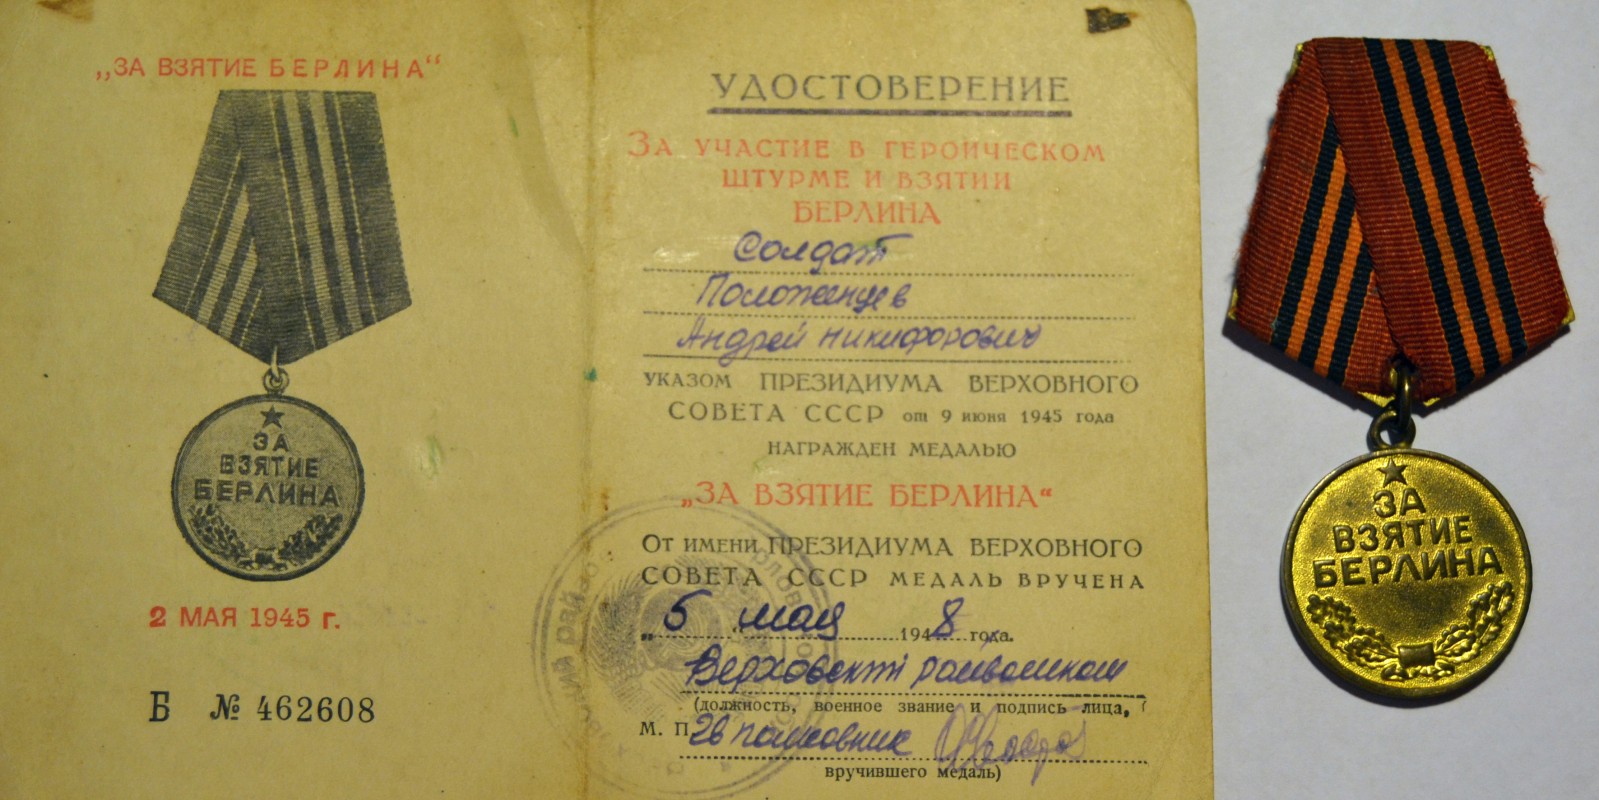 „ЗА ВЗЯТИЕ БЕРЛИНА“
ЗА
ВЗЯТИЕ
БЕРЛИНА
2 МАЯ 1945 г.
Б № 462608
УДОСТОВЕРЕНИЕ
ЗА УЧАСТИЕ В ГЕРОИЧЕСКОМ
ШТУРМЕ И ВЗЯТИИ
БЕРЛИНА
Солдат
Положенцев
Андрей Никифорович
УКАЗОМ ПРЕЗИДИУМА ВЕРХОВНОГО
СОВЕТА СССР от 9 июня 1945 года
НАГРАЖДЕН МЕДАЛЬЮ
„ЗА ВЗЯТИЕ БЕРЛИНА“
ОТ ИМЕНИ ПРЕЗИДИУМА ВЕРХОВНОГО
СОВЕТА СССР МЕДАЛЬ ВРУЧЕНА
„5“ мая 1948 года.
(должность, военное звание и подпись лица,
М. П.
вручившего медаль)
ЗА
ВЗЯТИЕ
БЕРЛИНА